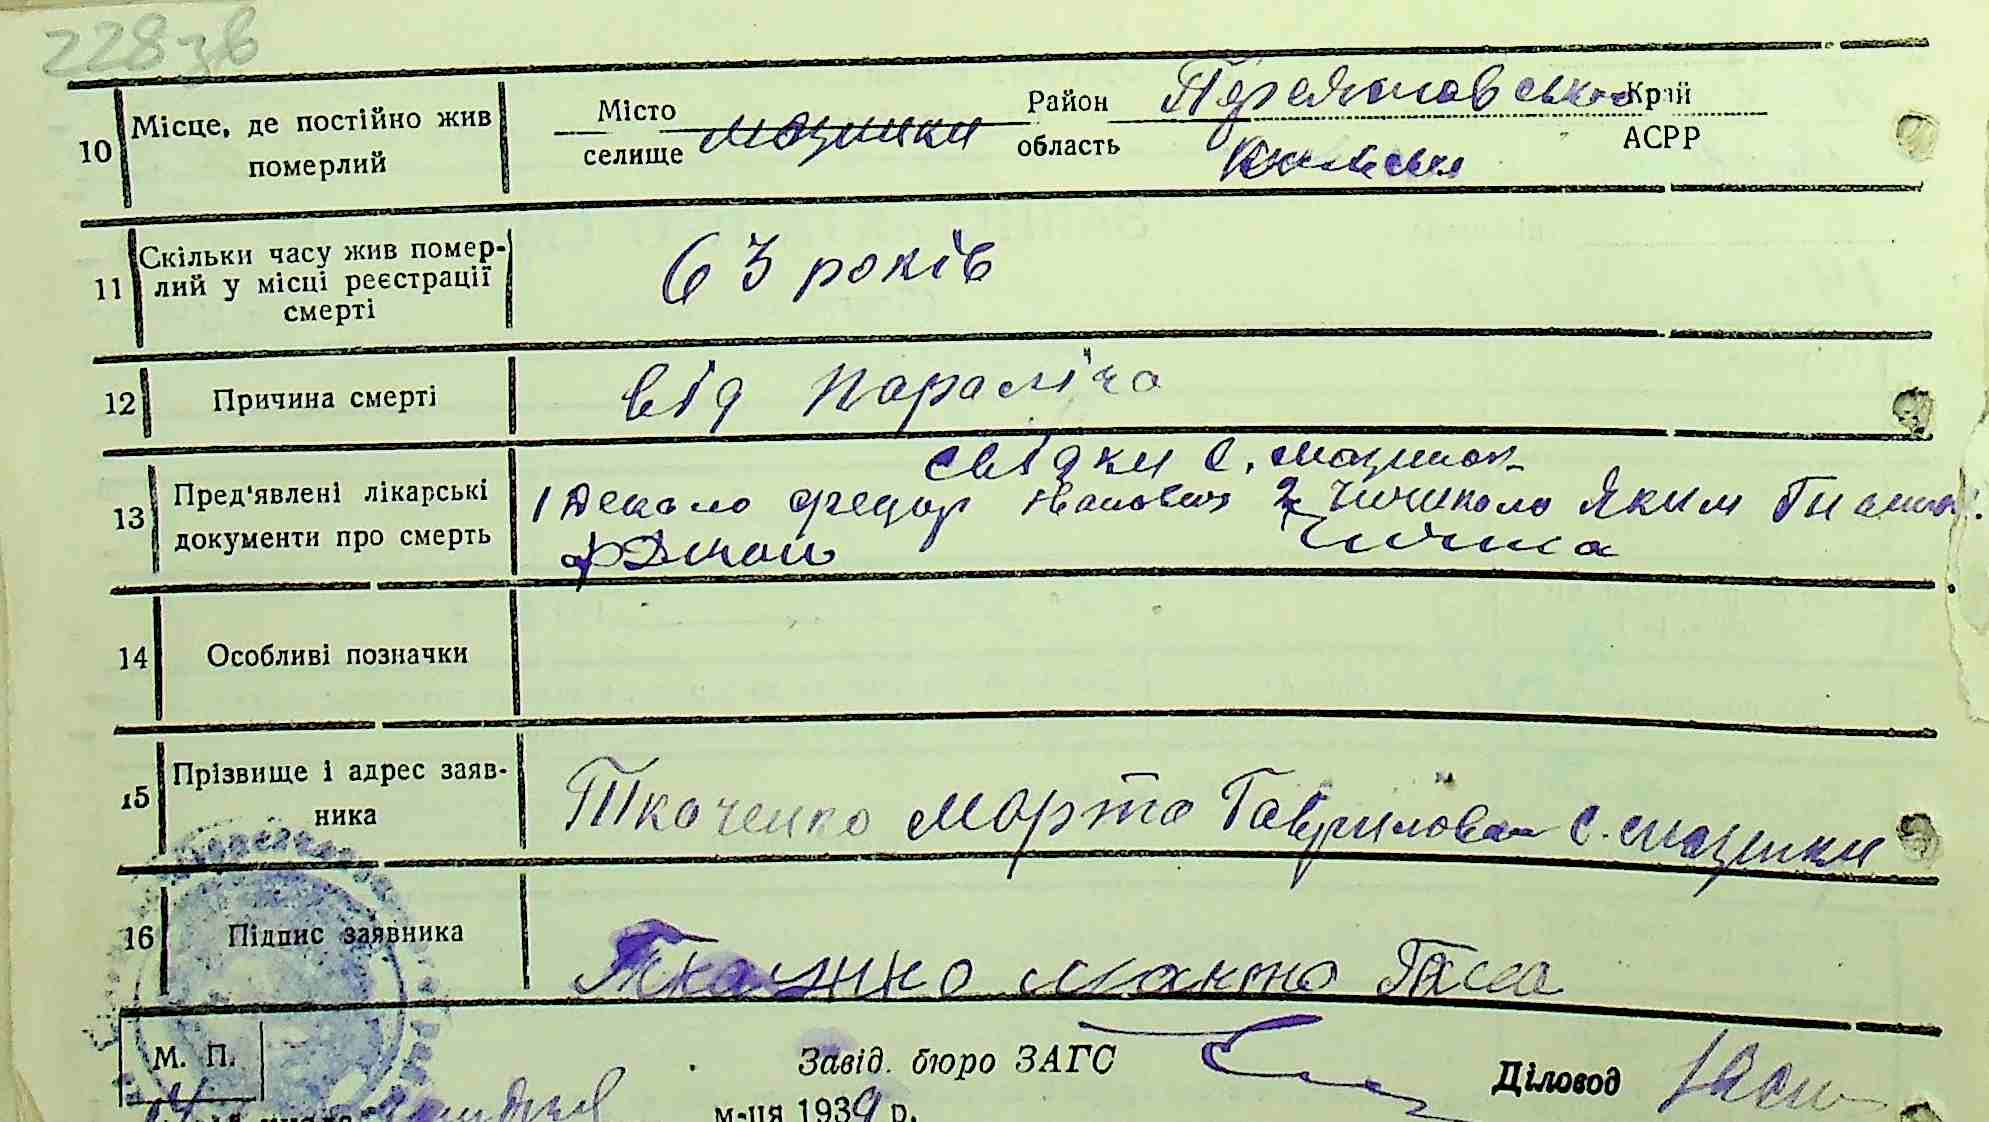 228 зв
10 Місце, де постійно жив померлий
Місто селище Мазинки Район Переяславський Край
область Київська АСРР
11 Скільки часу жив помер-
лий у місці реєстрації
смерті
63 років
12 Причина смерті від параліча
свідки с. Мазинки
13 Пред'явлені лікарські
документи про смерть
1 Федор Іванович 2 Яким
14 Особливі позначки
15 Прізвище і адрес заяв-
ника
Ткаченко Марта Гаврилівна с. Мазинки
16 Підпис заявника
М. П.
Завід. бюро ЗАГС
Діловод
м-ця 1939 р.